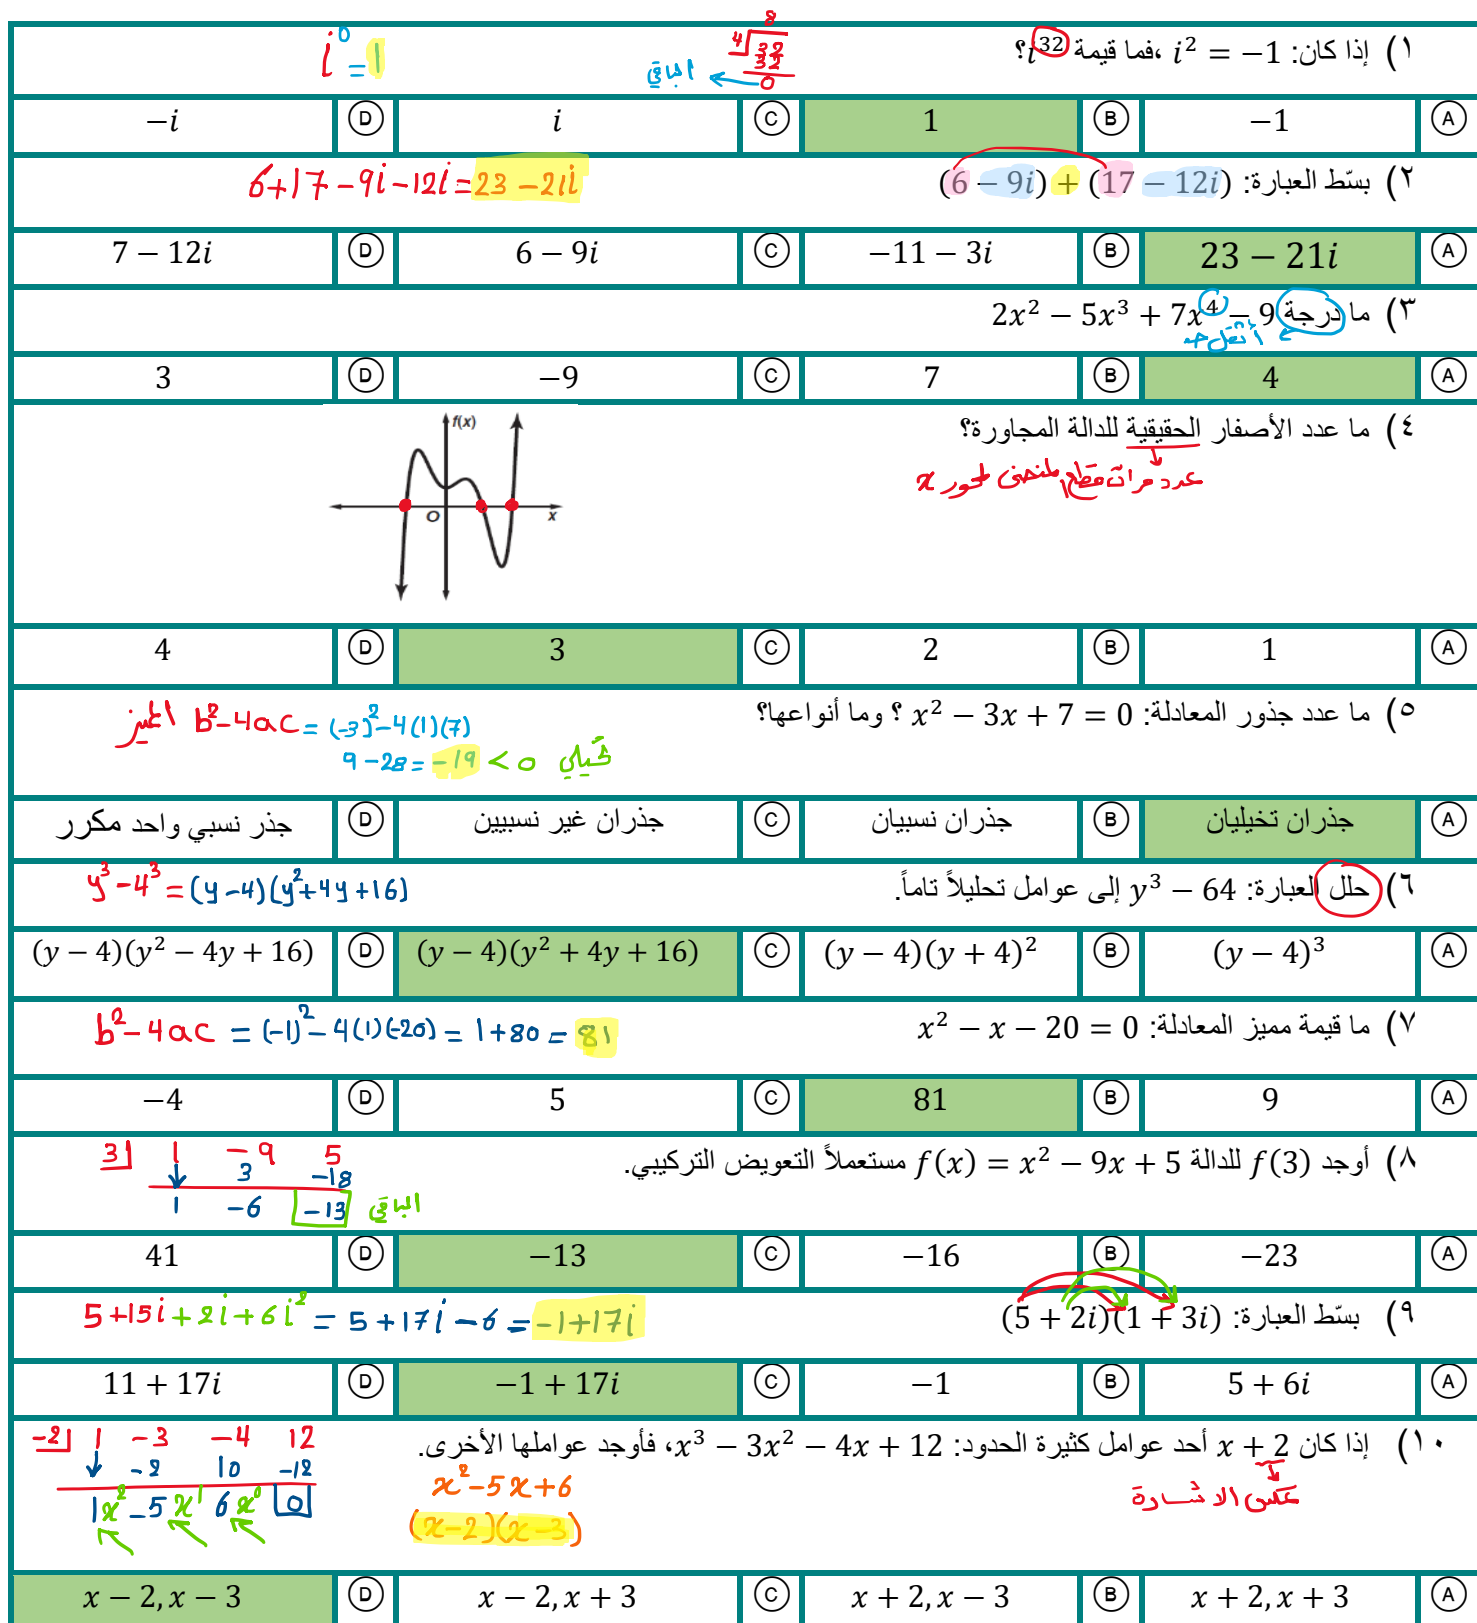 ١) إذا كان: i² = −1 ،فما قيمة i³²؟
4 32 8
32
0 الباقي
i⁰ = 1
A −1 B 1 C i D −i
٢) بسّط العبارة: (6 − 9i) + (17 − 12i)
6+17−9i−12i = 23 −21i
A 23 − 21i B −11 − 3i C 6 − 9i D 7 − 12i
٣) ما درجة 2x² − 5x³ + 7x⁴ − 9
A 4 B 7 C −9 D 3
٤) ما عدد الأصفار الحقيقية للدالة المجاورة؟
عدد مرات قطع المنحنى لمحور x
f(x)
O x
A 1 B 2 C 3 D 4
٥) ما عدد جذور المعادلة: x² − 3x + 7 = 0 ؟ وما أنواعها؟
المميز b²−4ac = (−3)²−4(1)(7)
9−28 = −19 < 0 تخيلي
A جذران تخيليان B جذران نسبيان C جذران غير نسبيين D جذر نسبي واحد مكرر
٦) حلل العبارة: y³ − 64 إلى عوامل تحليلاً تاماً.
y³−4³ = (y−4)(y²+4y+16)
A (y − 4)³ B (y − 4)(y + 4)² C (y − 4)(y² + 4y + 16) D (y − 4)(y² − 4y + 16)
٧) ما قيمة مميز المعادلة: x² − x − 20 = 0
b²−4ac = (−1)²−4(1)(−20) = 1+80 = 81
A 9 B 81 C 5 D −4
٨) أوجد f(3) للدالة f(x) = x² − 9x + 5 مستعملاً التعويض التركيبي.
3 1 −9 5
3 −18
1 −6 −13 الباقي
A −23 B −16 C −13 D 41
٩) بسّط العبارة: (5 + 2i)(1 + 3i)
5+15i+2i+6i² = 5+17i−6 = −1+17i
A 5 + 6i B −1 C −1 + 17i D 11 + 17i
١٠) إذا كان x + 2 أحد عوامل كثيرة الحدود: x³ − 3x² − 4x + 12، فأوجد عواملها الأخرى.
عكس الاشارة
−2 1 −3 −4 12
−2 10 −12
1x² −5x¹ 6x⁰ 0
x²−5x+6
(x−2)(x−3)
A x + 2, x + 3 B x + 2, x − 3 C x − 2, x + 3 D x − 2, x − 3